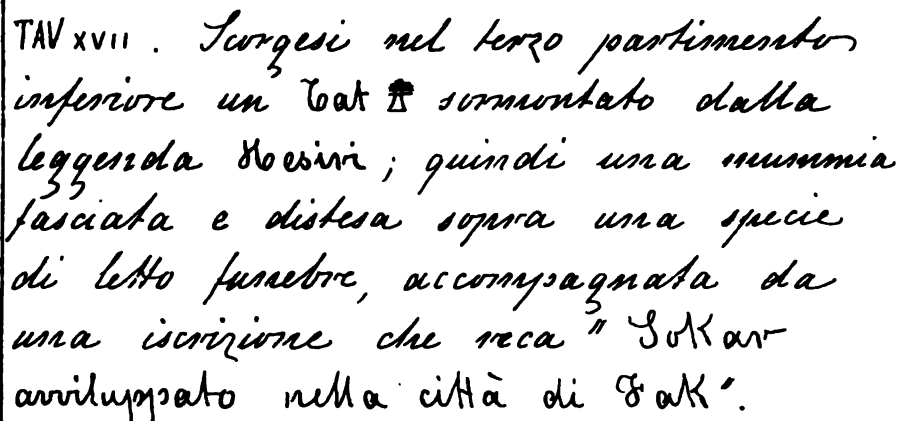 TAV XVII. Scorgesi nel terzo partimento
inferiore un Tat sormontato dalla
leggenda Hesiri; quindi una mummia
fasciata e distesa sopra una specie
di letto funebre, accompagnata da
una iscrizione che reca "Sokar
avviluppato nella città di Fak".